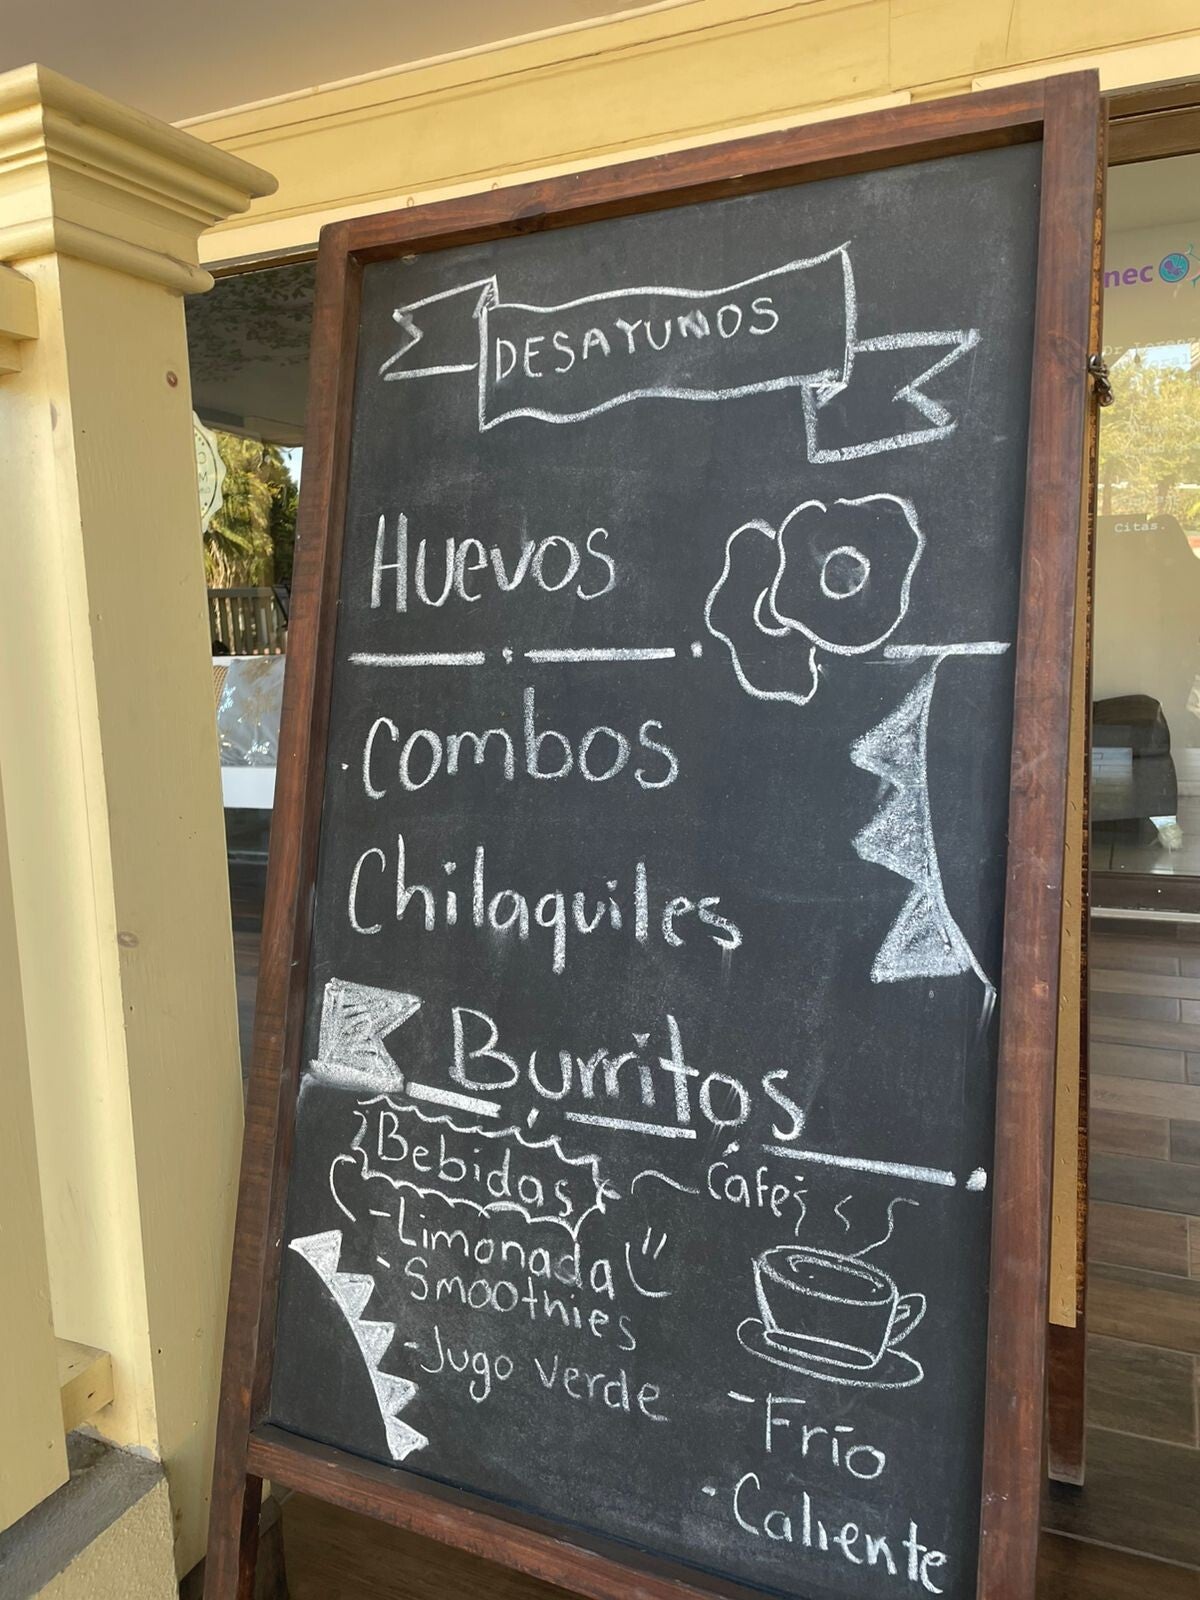 DESAYUNOS
Huevos
Combos
Chilaquiles
Burritos
Bebidas
-Limonada
-Smoothies
-Jugo verde
Cafes
-Frío
-Caliente
nec
Citas.